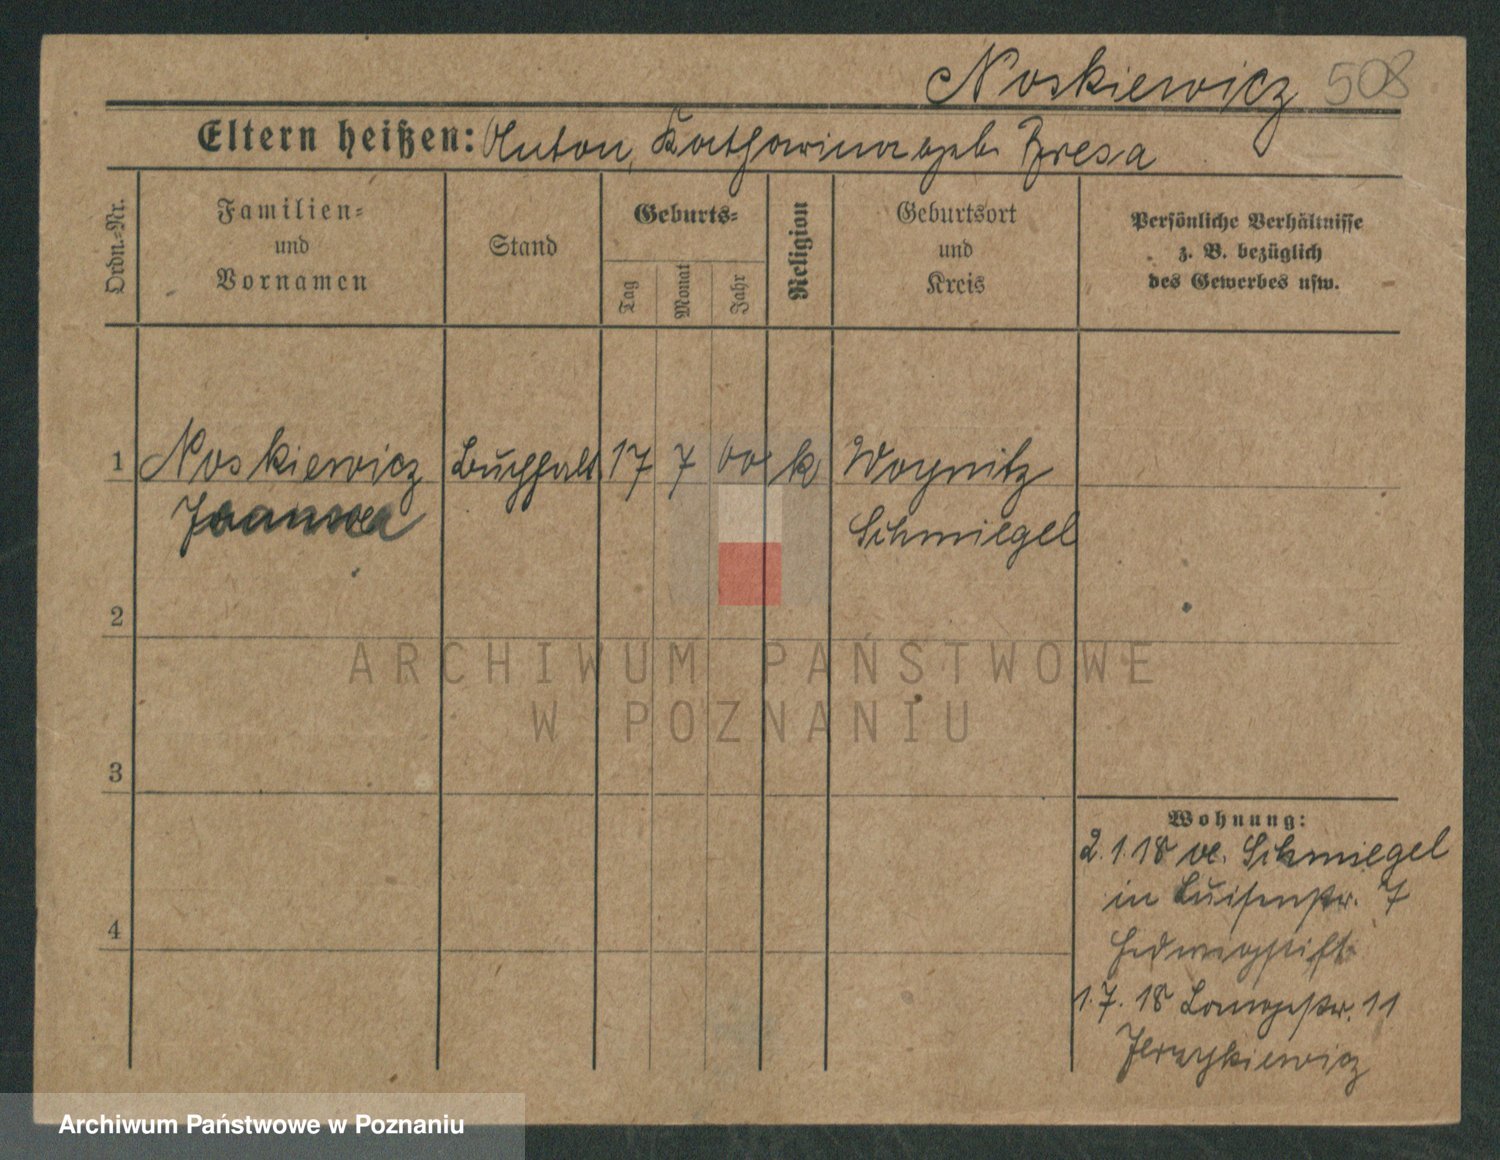 Noskiewicz 508
Eltern heißen: Anton, Katharina geb. Bresa
Ordn.-Nr.
Familien-
und
Vornamen
Stand
Geburts-
Tag
Monat
Jahr
Religion
Geburtsort
und
Kreis
Persönliche Verhältnisse
z. B. bezüglich
des Gewerbes usw.
1 Noskiewicz Buchhalt. 17 7 00 k Woynitz
Schmiegel
2
3
4
Wohnung:
2.1.18 ve. Schmiegel
in Luisenstr. 7
Hedwigstift
1.7.18 Langestr. 11
Jerzykiewicz
ARCHIWUM PAŃSTWOWE
W POZNANIU
Archiwum Państwowe w Poznaniu